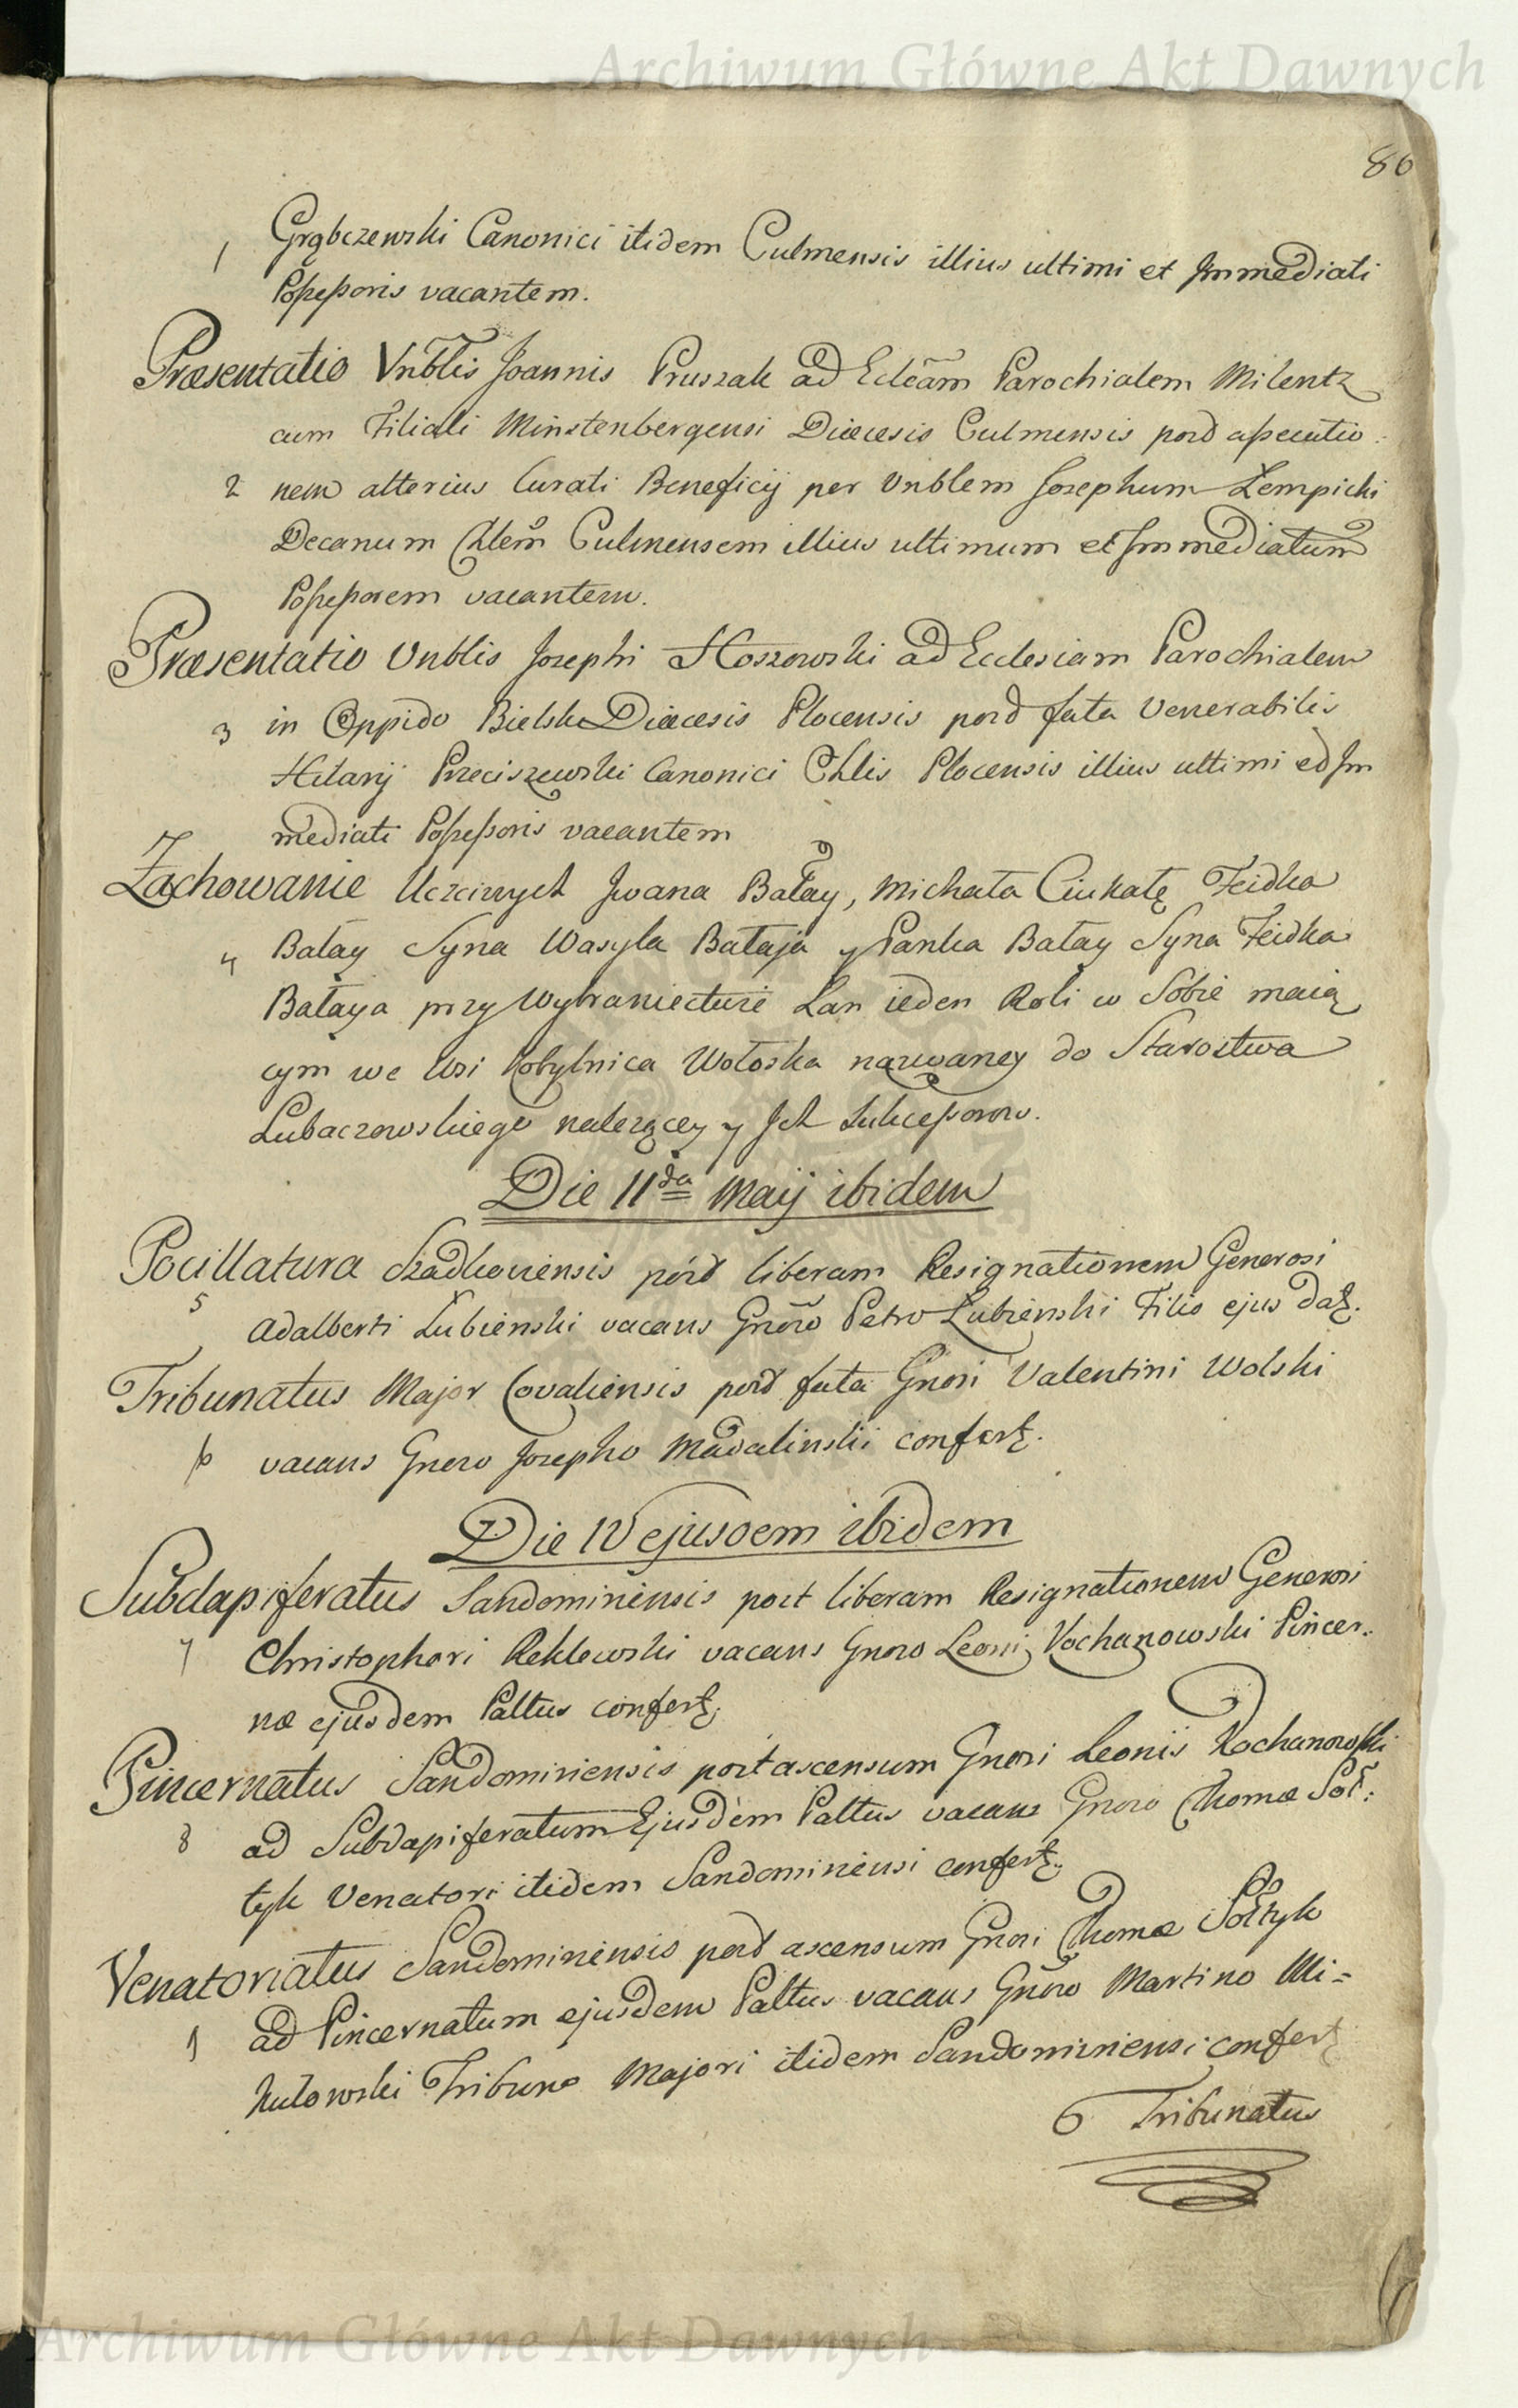 Archiwum Główne Akt Dawnych
86
Grąbczewski Canonici itidem Culmensis illius ultimi et Immediati
1
Poſseſsoris vacantem.
Præsentatio Vnblis Joannis Pruszak ad Eccl͠am Parochialem Milentz
cum Filiali Minstenbergensi Diæcesis Culmensis post aſsecutio
2 nem alterius Curati Beneficij per Vnblem Josephum Łempicki
Decanum Chlem Culmensem illius ultimum et Immediatum
Poſseſsorem vacantem.
Præsentatio Vnblis Josephi Hoszowski ad Ecclesiam Parochialem
3 in Oppido Bielsk Diæcesis Plocensis post fata Venerabilis
Hilarij Przeciszewski Canonici Chlis Plocensis illius ultimi et Im
mediati Poſseſsoris vacantem
Zachowanie Uczciwych Jwana Bałay, Michała Ciukałę Fedka
4 Bałay Syna Wasyla Bałaja y Panka Bałay Syna Fedka
Bałaya przy Wybraniecturze Łan ieden Roli w Sobie maią
cym we Wsi Kobylnica Wołoska nazwaney do Starostwa
Lubaczowskiego należącey y Jch Sukceſsorow.
Die 11da Maij ibidem
Pocillatura Szadkoviensis post liberam Resignationem Generosi
5
Adalberti Łubieński vacans Gnero Petro Łubieński Filio ejus dat.
Tribunatus Major Covaliensis post fata Gnosi Valentini Wolski
6 vacans Gnero Josepho Madalinski confert.
Die 12 ejusdem ibidem
Subdapiferatus Sandominiensis post liberam Resignationem Generosi
7 Christophori Reklewski vacans Gnoso Leoni Kochanowski Pincer-
næ ejusdem Pallus confert.
Pincernatus Sandominiensis post ascensum Gnosi Leonis Kochanowski
8 ad Subdapiferatum Ejusdem Pallus vacans Gnoso Thomæ Soł:
tyk Venatori itidem Sandominiensi confert.
Venatoriatus Sandominiensis post ascensum Gnosi Thomæ Sołtyk
9 ad Pincernatum ejusdem Pallus vacans Gnoso Martino Mi=
kułowski Tribuno Majori itidem Sandominiensi confert
6 Tribunatus
Archiwum Główne Akt Dawnych